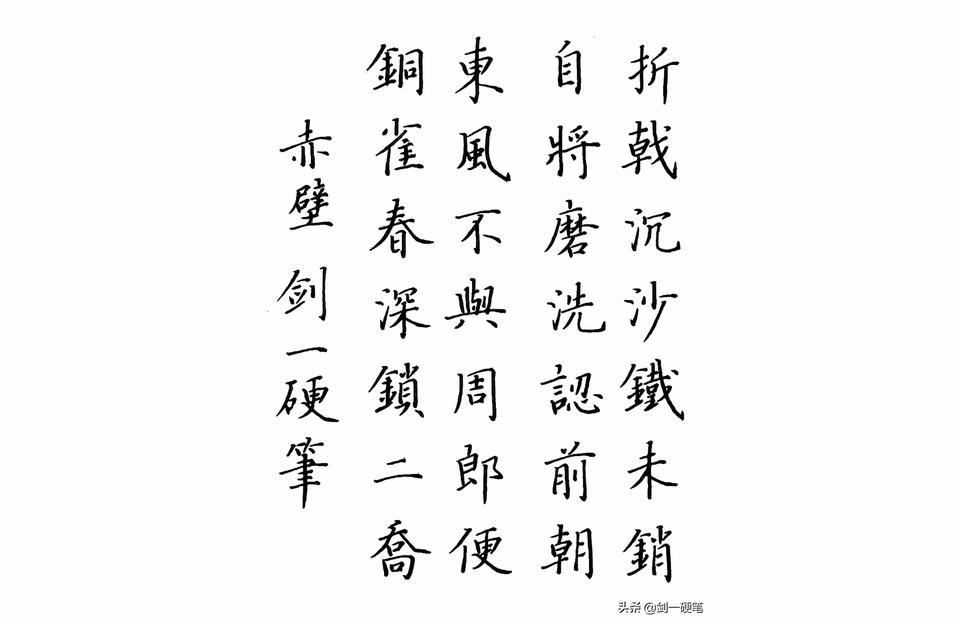 折戟沉沙鐵未銷
自將磨洗認前朝
東風不與周郎便
銅雀春深鎖二喬
赤壁 剑一硬筆
头条 @剑一硬笔